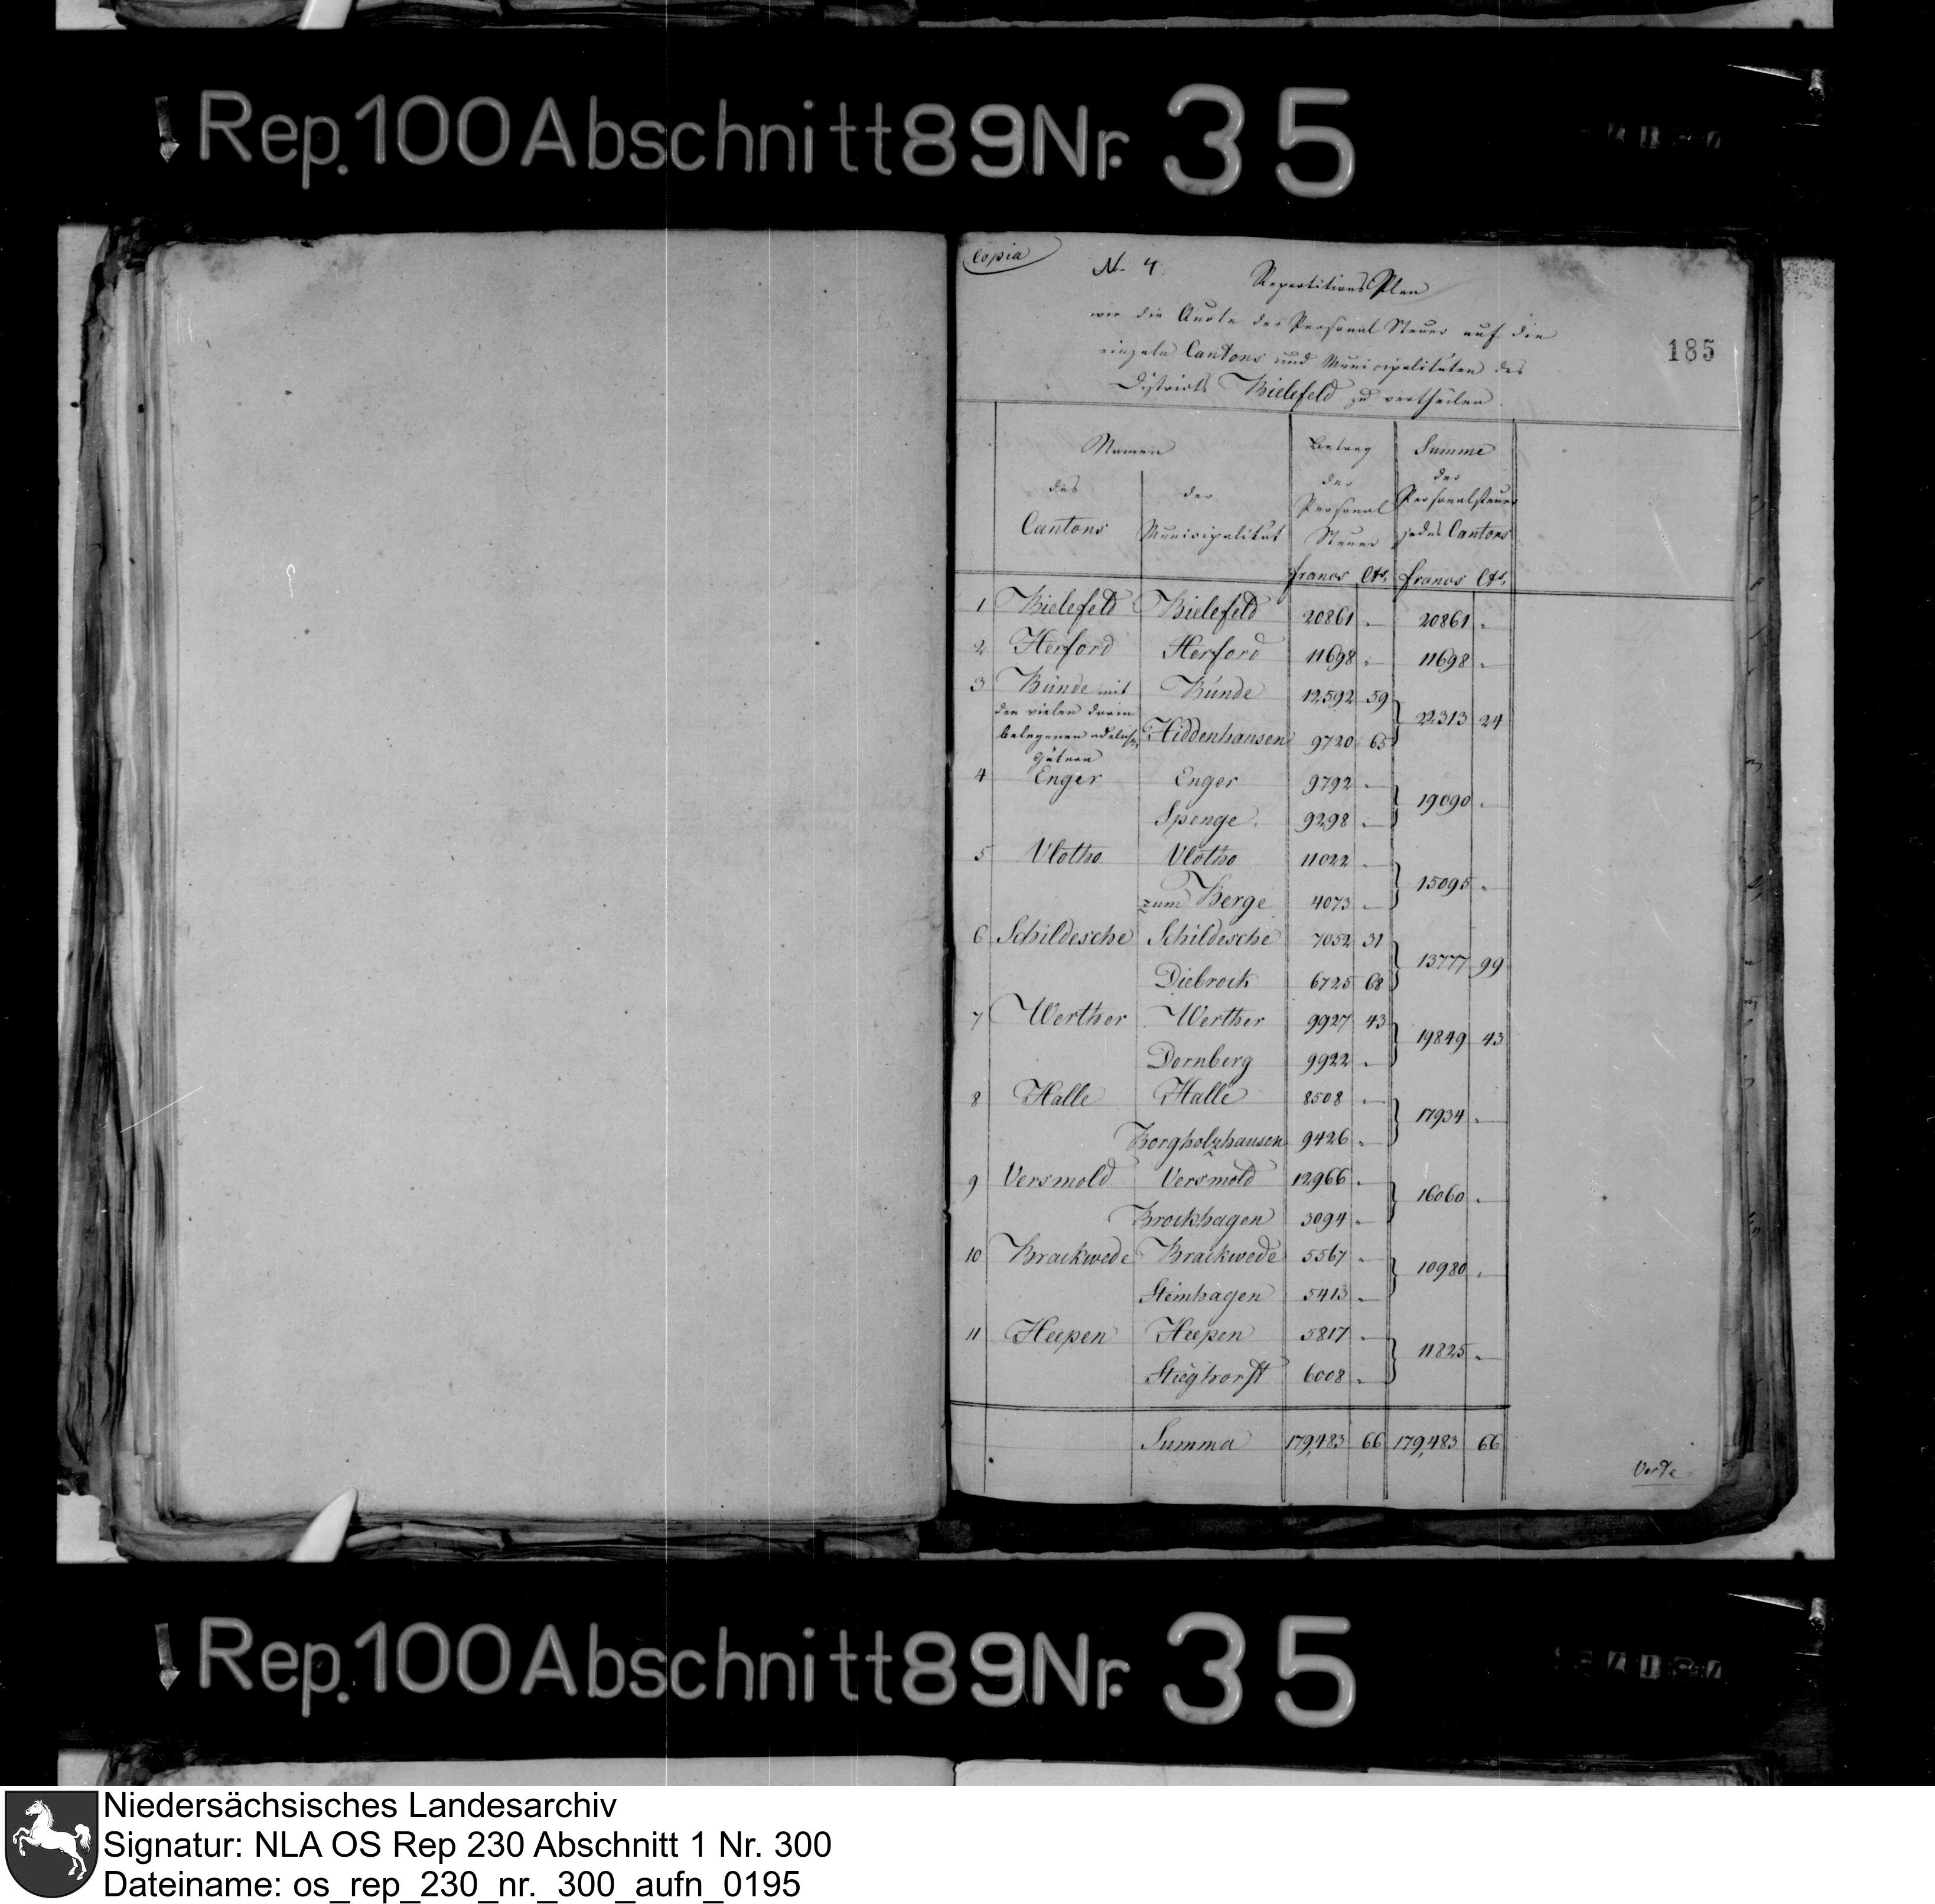 Rep. 100 Abschnitt 89 Nr. 35
Copia
No 4
Repartitions Plan
wie die Quote der Personal Steuer auf die
einzeln Cantons und Municipalitäten des
Districts Bielefeld zu vertheilen.
185
Namen | Betrag der Personal Steuer | Summe der Personalsteuer jedes Cantons
des Cantons | der Municipalität | francs | Cts. | francs | Cts.
1 Bielefeld | Bielefeld | 20861 | - | 20861 | -
2 Herford | Herford | 11698 | - | 11698 | -
3 Bünde mit | Bünde | 12592 | 59
den vielen darin | 22313 | 24
belegenen adelichen | Hiddenhausen | 9720 | 65
Gütern
4 Enger | Enger | 9792 | -
19090 | -
Spenge. | 9298 | -
5 Vlotho | Vlotho | 11022 | -
15095 | -
zum Berge | 4073 | -
6 Schildesche | Schildesche | 7052 | 31
13777 | 99
Diebrock | 6725 | 68
7 Werther | Werther | 9927 | 43
19849 | 43
Dornberg | 9922 | -
8 Halle | Halle | 8508 | -
17934 | -
Borgholzhausen | 9426 | -
9 Versmold | Versmold | 12966 | -
16060 | -
Brockhagen | 3094 | -
10 Brackwede | Brackwede | 5567 | -
10980 | -
Steinhagen | 5413 | -
11 Heepen | Heepen | 5817 | -
11825 | -
Stieghorst | 6008 | -
Summa | 179,483 | 66 | 179,483 | 66
Verte
Rep. 100 Abschnitt 89 Nr. 35
Niedersächsisches Landesarchiv
Signatur: NLA OS Rep 230 Abschnitt 1 Nr. 300
Dateiname: os_rep_230_nr._300_aufn_0195